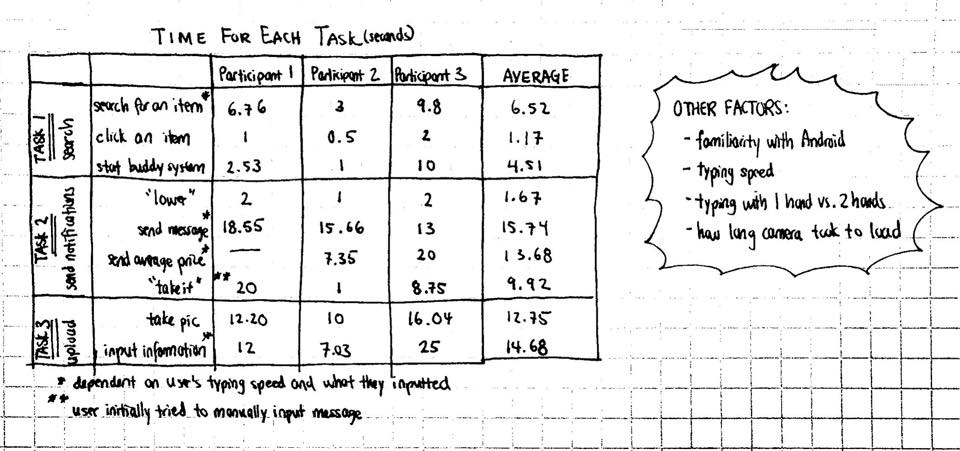 TIME FOR EACH TASK (seconds)
Participant 1 Participant 2 Participant 3 AVERAGE
TASK 1 search
search for an item* 6.76 3 9.8 6.52
click an item 1 0.5 2 1.17
stat buddy system 2.53 1 10 4.51
TASK 2 send notifications
"lower" 2 1 2 1.67
send message* 18.55 15.66 13 15.74
send average price* — 7.35 20 13.68
"take it" ** 20 1 8.75 9.92
TASK 3 upload
take pic 12.20 10 16.04 12.75
input information* 12 7.03 25 14.68
* dependent on user's typing speed and what they inputted
** user initially tried to manually input message
OTHER FACTORS:
- familiarity with Android
- typing speed
- typing with 1 hand vs. 2 hands
- how long camera took to load